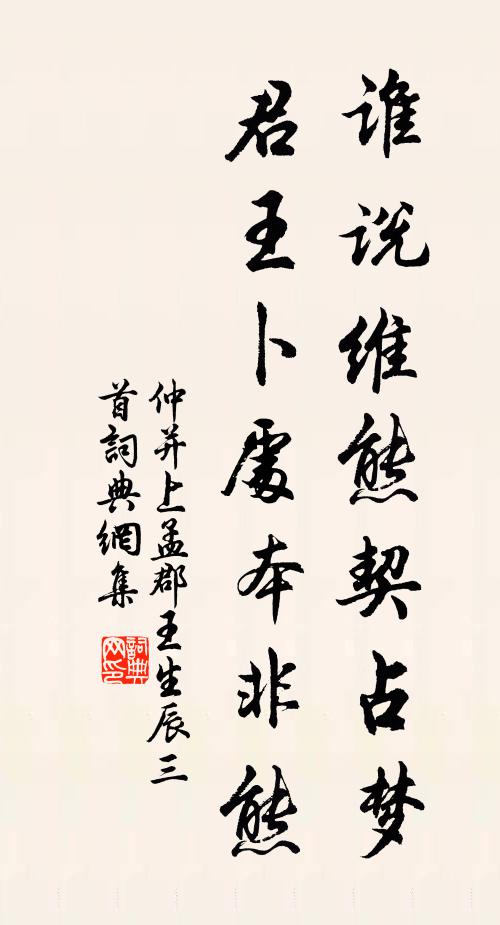 谁说维熊契占梦
君王卜处本非熊
仲并上孟郡王生辰三
首詞典網集
詞典网印